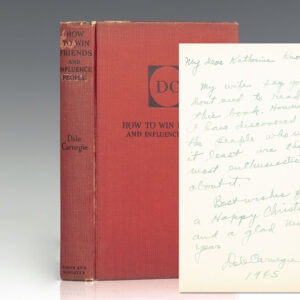 HOW
TO WIN
FRIENDS
AND
INFLUENCE
PEOPLE
Dale
Carnegie
SIMON AND
SCHUSTER
DC
HOW TO WIN
AND INFLUENC
My dear Katherine
My wife say
to read
this book. How
I have discovered
the people who
it least are the
most enthusiastic
about it.
Best wishes
a Happy Christ
and a glad
year
Dale Carnegie
1945